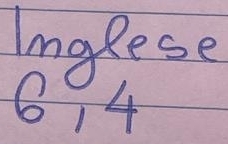 Inglese
6,4